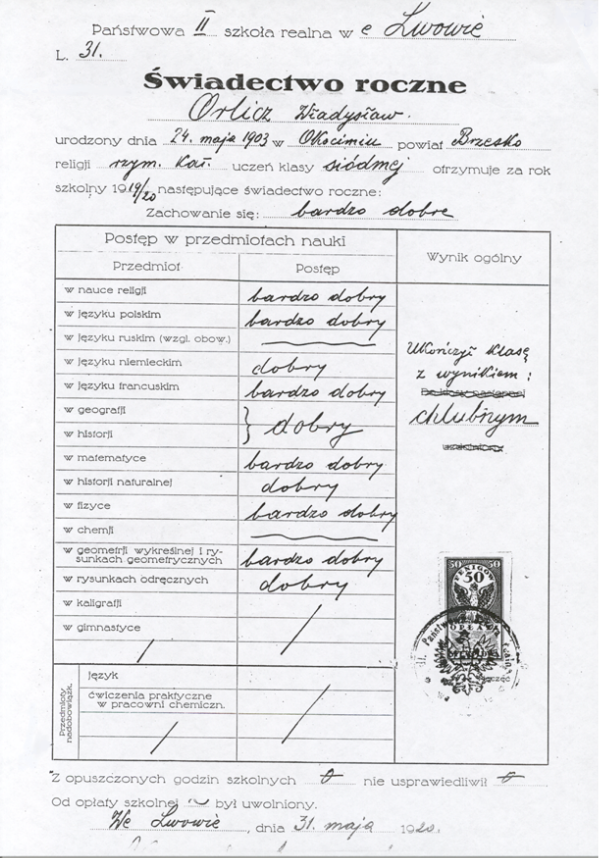 Państwowa II szkoła realna w e Lwowie
L. 31.
Świadectwo roczne
Orlicz Władysław.
urodzony dnia 24. maja 1903 w Okocimiu powiat Brzesko
religji rzym. kat. uczeń klasy siódmej otrzymuje za rok
szkolny 1919/20 następujące świadectwo roczne:
Zachowanie się: bardzo dobre
Postęp w przedmiotach nauki
Wynik ogólny
Przedmiot Postęp
w nauce religji bardzo dobry
w języku polskim bardzo dobry
w języku ruskim (wzgl. obow.)
w języku niemieckim dobry
w języku francuskim bardzo dobry
w geografji
w historji } dobry
w matematyce bardzo dobry
w historji naturalnej dobry
w fizyce bardzo dobry
w chemji
w geometrji wykreślnej i ry-
sunkach geometrycznych bardzo dobry
w rysunkach odręcznych dobry
w kaligrafji
w gimnastyce
Ukończył klasę
z wynikiem:
chlubnym
50 50
50
FENIGÓW
OPŁATA
Przedmioty
nadobowiązk.
Język
ćwiczenia praktyczne
w pracowni chemiczn.
Z opuszczonych godzin szkolnych 0 nie usprawiedliwił 0
Od opłaty szkolnej był uwolniony.
We Lwowie, dnia 31. maja 1920.